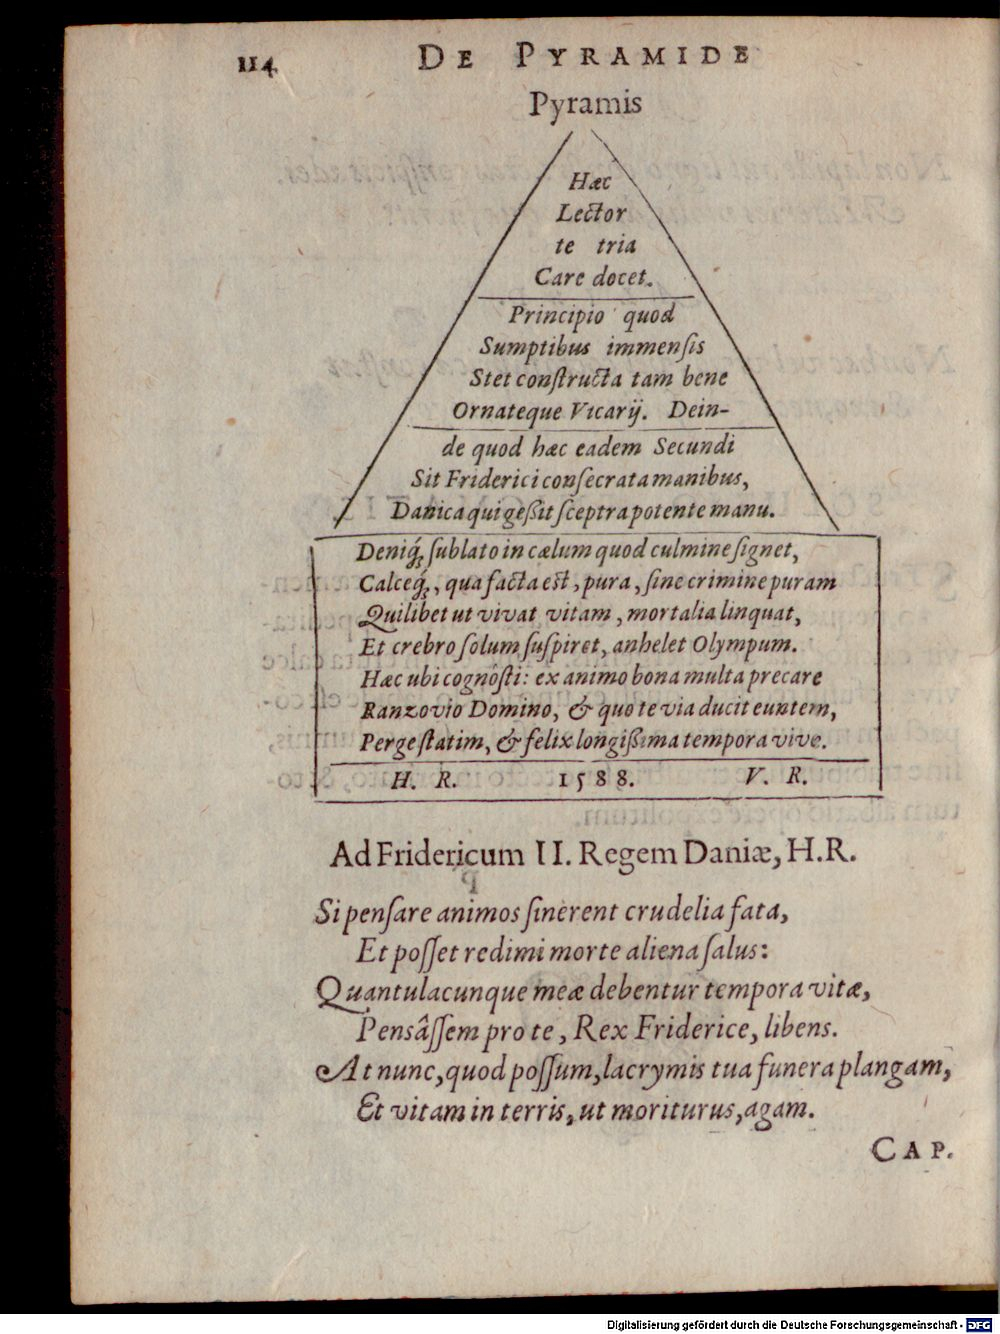 114 DE PYRAMIDE
Pyramis
Hæc
Lector
te tria
Care docet.
Principio quod
Sumptibus immenſis
Stet conſtructa tam bene
Ornateque Vicarij. Dein-
de quod hæc eadem Secundi
Sit Friderici conſecrata manibus,
Danica qui geßit ſceptra potente manu.
Deniq́; ſublato in cælum quod culmine ſignet,
Calceq́;, qua facta est, pura, ſine crimine puram
Quilibet ut vivat vitam, mortalia linquat,
Et crebro ſolum ſuſpiret, anhelet Olympum.
Hæc ubi cognôſti: ex animo bona multa precare
Ranzovio Domino, & quo te via ducit euntem,
Perge ſtatim, & felix longißima tempora vive.
H. R. 1588. V. R.
Ad Fridericum II. Regem Daniæ, H.R.
Si penſare animos ſinerent crudelia fata,
Et poſſet redimi morte aliena ſalus:
Quantulacunque meæ debentur tempora vitæ,
Pensâſſem pro te, Rex Friderice, libens.
At nunc, quod poſſum, lacrymis tua funera plangam,
Et vitam in terris, ut moriturus, agam.
CAP.
Digitalisierung gefördert durch die Deutsche Forschungsgemeinschaft - DFG